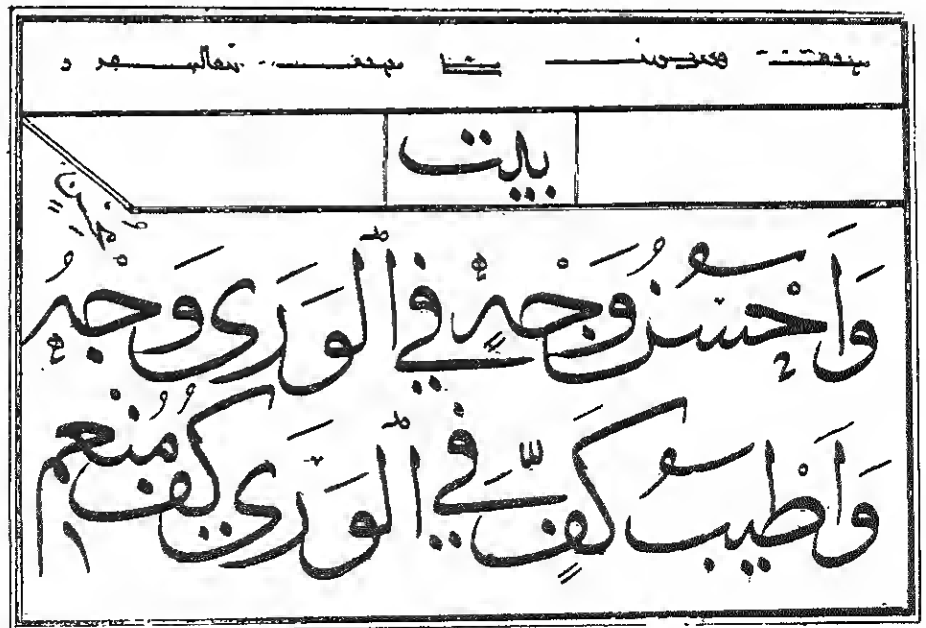 بيت
وَاَحْسَنُ وَجْهٍ فِي الْوَرَى وَجْهُ مُحْسِنٍ
وَاَطْيَبُ كَفٍّ فِي الْوَرَى كَفُّ مُنْعِمِ